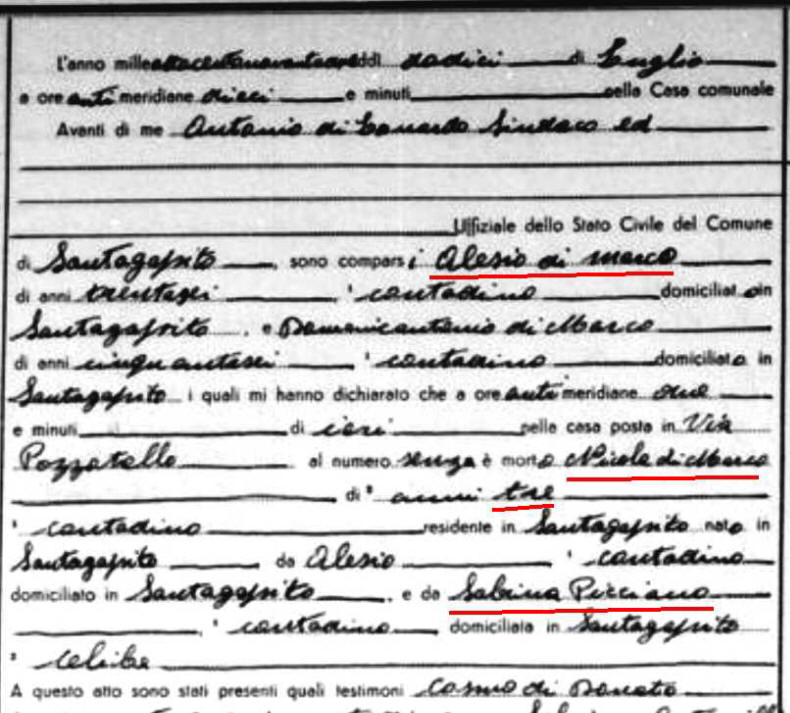 L'anno milleottocentonovantatre addì dodici di Luglio
a ore anti meridiane dieci e minuti nella Casa comunale
Avanti di me Antonio di Leonardo Sindaco ed
Uffiziale dello Stato Civile del Comune
di Santagapito, sono comparsi Alesio di Marco
di anni trentasei, contadino domiciliato in
Santagapito, e Domenicantonio di Marco
di anni cinquantasei, contadino domiciliato in
Santagapito i quali mi hanno dichiarato che a ore anti meridiane due
e minuti di ieri nella casa posta in Via
Pozzatello al numero senza è morto Nicola di Marco
di anni tre
contadino residente in Santagapito nato in
Santagapito da Alesio, contadino
domiciliato in Santagapito, e da Sabina Picciano
, contadino domiciliata in Santagapito
celibe
A questo atto sono stati presenti quali testimoni Cosmo di Donato